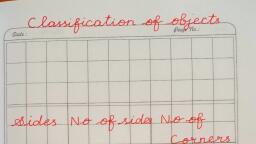 Classification of objects
Date:
Page No.:
Sides No of sides No of
Corners